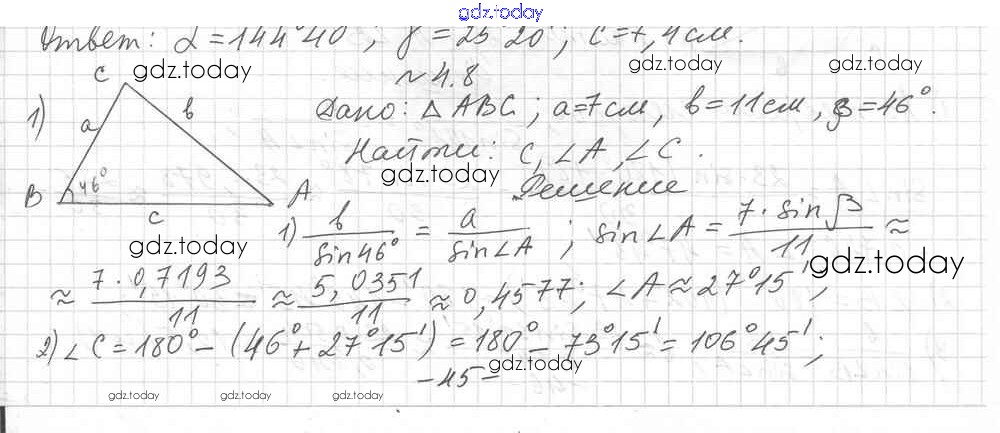 gdz.today
Ответ: α = 144°40', γ = 25°20'; c = 7,4 см.
gdz.today
gdz.today
gdz.today
№ 4.8
1)
C
a
b
B
46°
A
c
Дано: △ ABC; a = 7 см, b = 11 см, β = 46°.
Найти: c, ∠A, ∠C.
gdz.today
Решение
gdz.today
1) b/sin46° = a/sin∠A; sin∠A = 7·sinβ/11 ≈
gdz.today
≈ 7·0,7193/11 ≈ 5,0351/11 ≈ 0,4577; ∠A ≈ 27°15';
2) ∠C = 180° − (46° + 27°15') = 180° − 73°15' = 106°45';
gdz.today
−45−
gdz.today gdz.today gdz.today gdz.today gdz.today